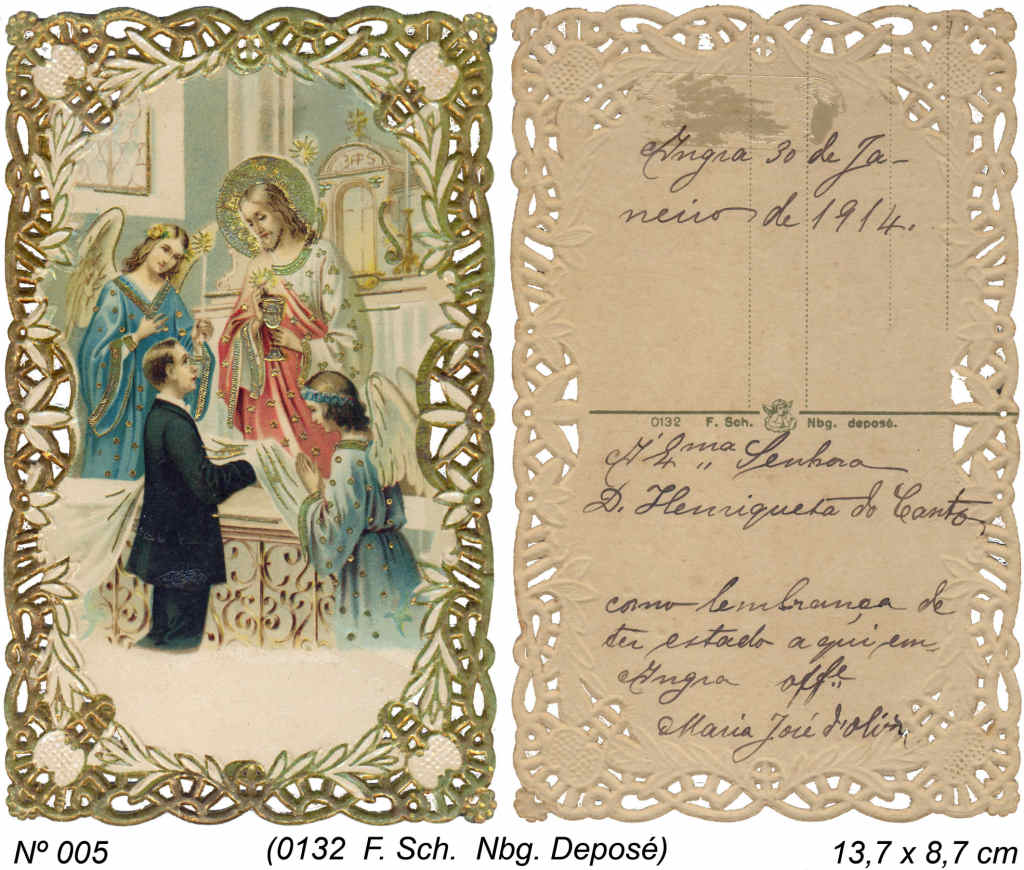 JHS
Angra 30 de Ja-
neiro de 1914.
0132 F. Sch. Nbg. deposé.
Á Exma Senhora
D. Henriqueta do Canto,
como lembrança de
ter estado aqui em
Angra offe.
Maria José d'Oliv.
Nº 005
(0132 F. Sch. Nbg. Deposé)
13,7 x 8,7 cm